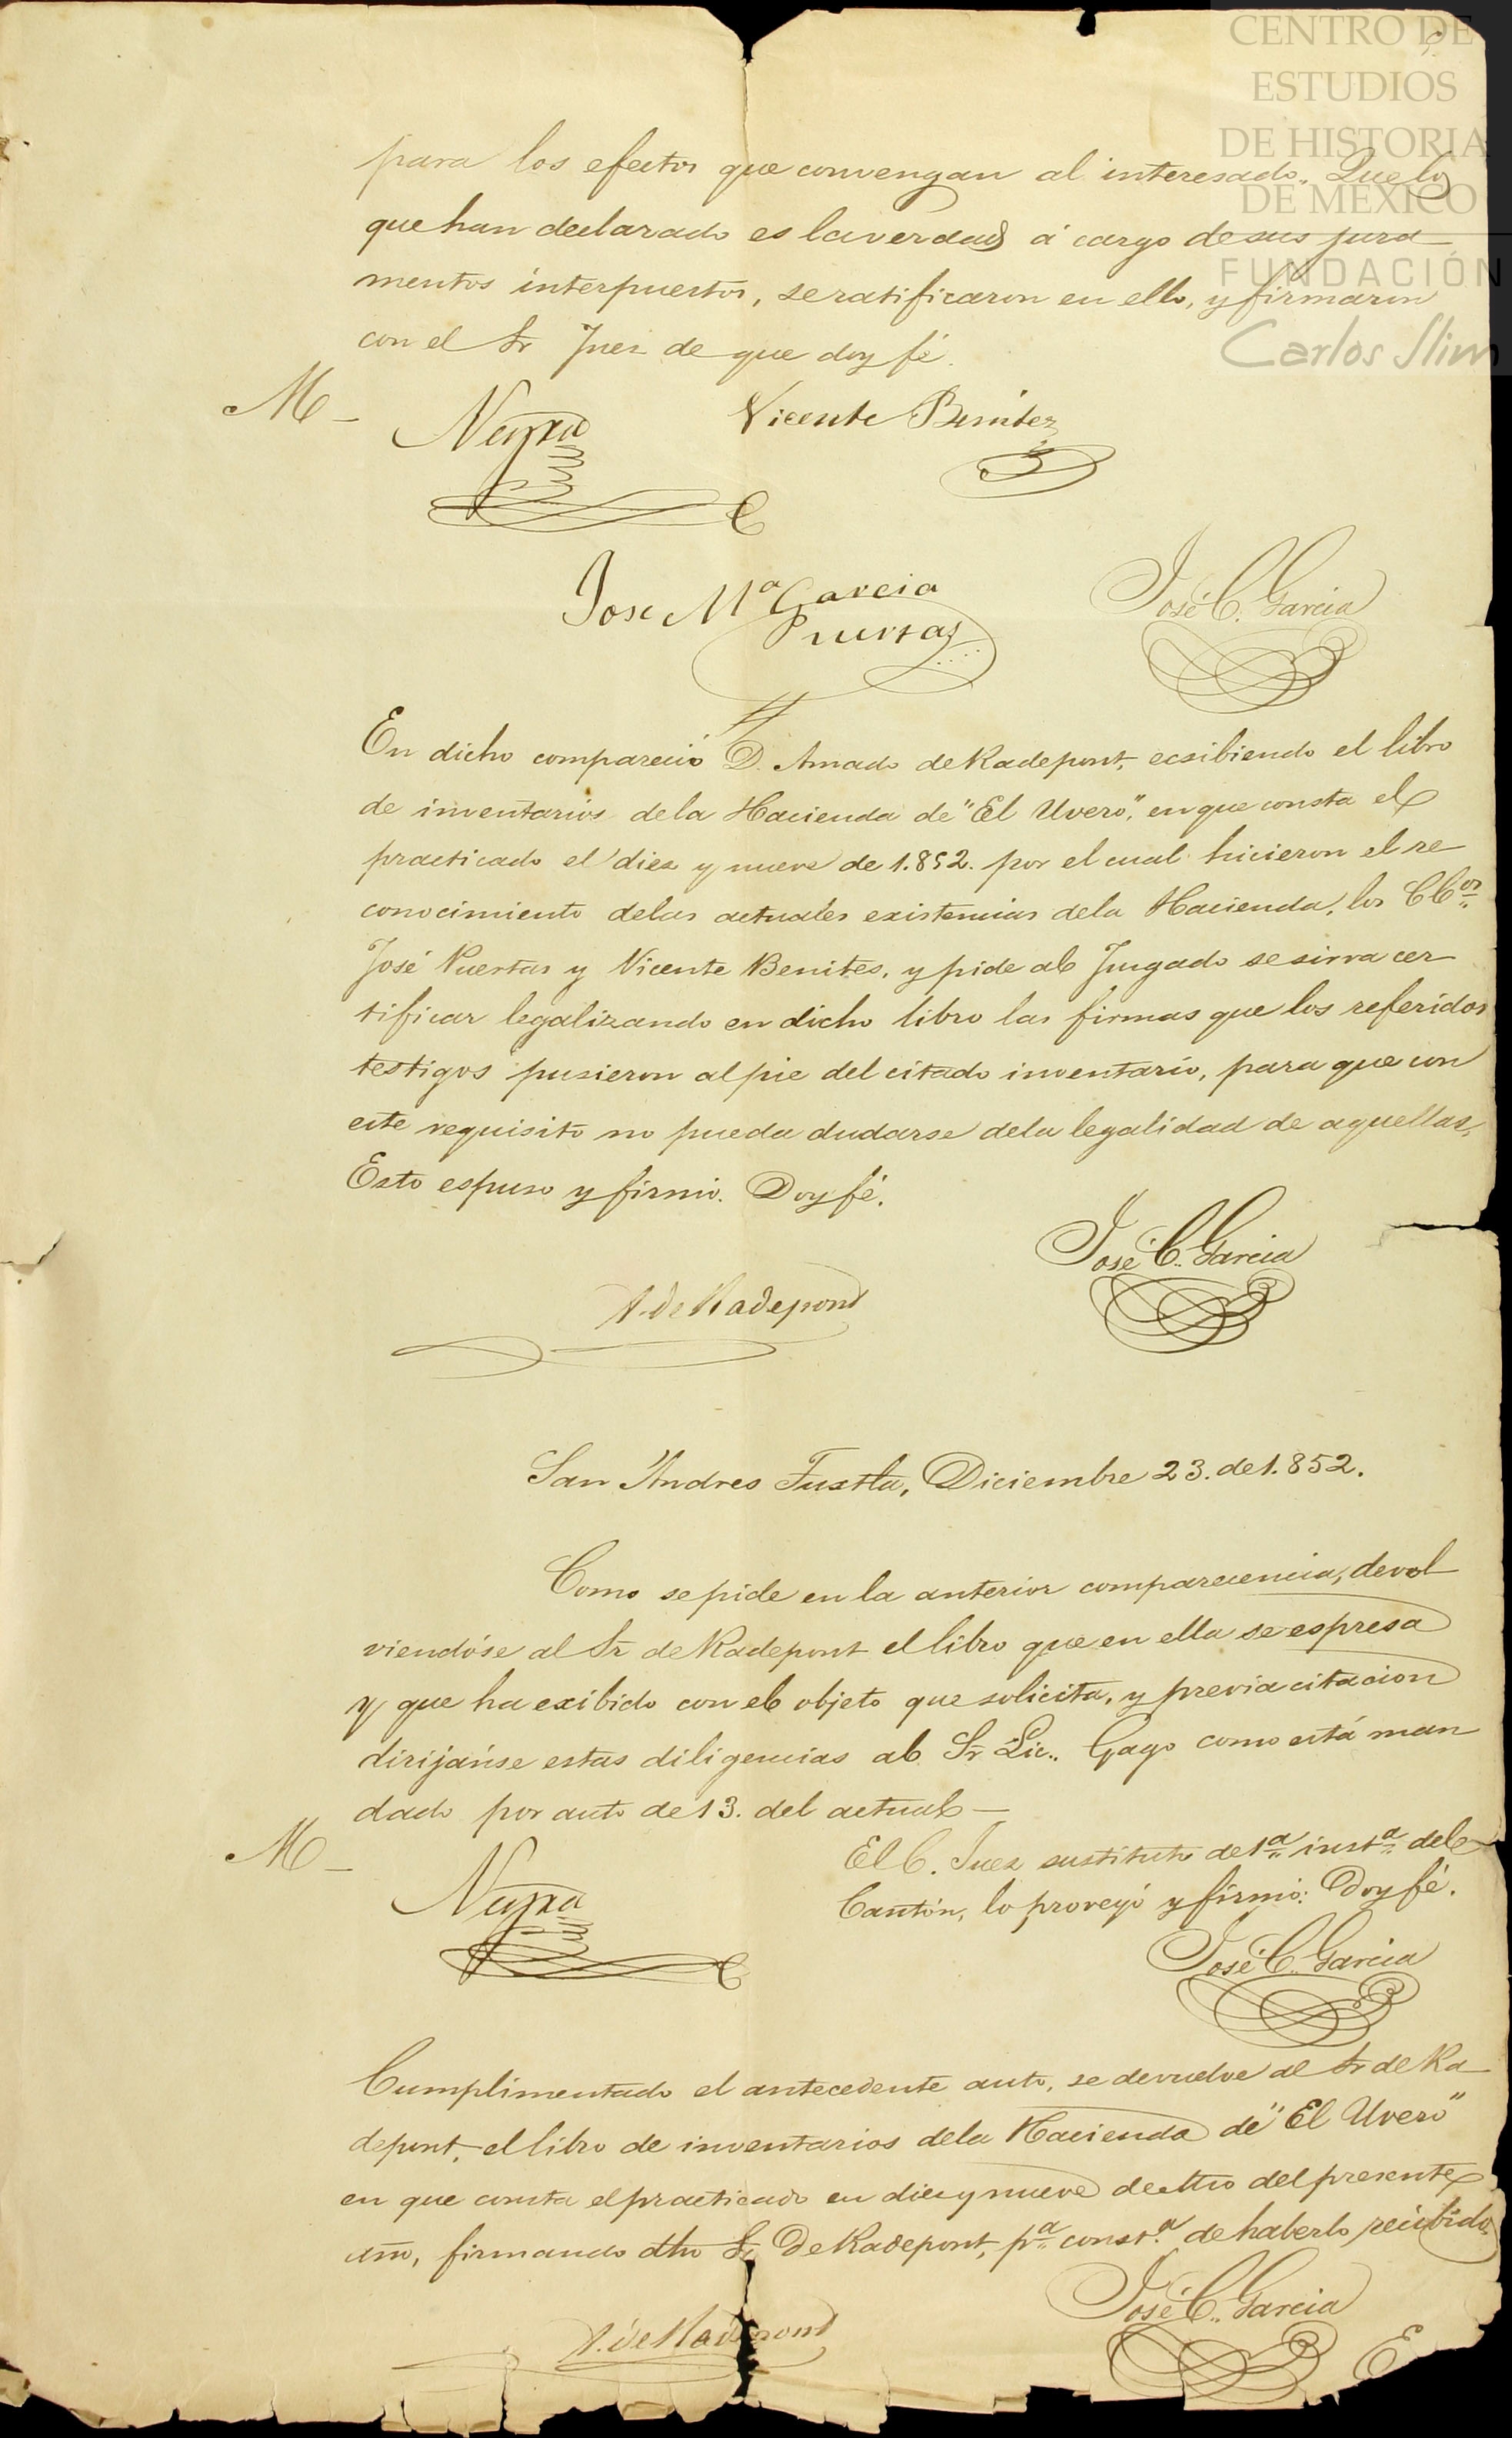 CENTRO DE
ESTUDIOS
DE HISTORIA
DE MÉXICO
FUNDACIÓN
Carlos Slim
para los efectos que convengan al interesado. Que lo
que han declarado es la verdad á cargo de sus jura
mentos interpuestos, se ratificaron en ello, y firmaron
con el Sr Juez de que doy fé.
M Neyra Vicente Benitez
Jose Ma Garcia
Puertas
José C. Garcia
En dicho compareció D. Amado de Radepont, ecsibiendo el libro
de inventarios de la Hacienda de "El Uvero", en que consta el
practicado el diez y nueve de 1.852. por el cual hicieron el re
conocimiento de las actuales existencias de la Hacienda, los CC.os
José Puertas y Vicente Benites, y pide al Jusgado se sirva cer
tificar legalizando en dicho libro las firmas que los referidos
testigos pusieron al pie del citado inventario, para que con
este requisito no pueda dudarse de la legalidad de aquellas,
Esto espuso y firmó. Doy fé.
José C. Garcia
A. de Radepont
San Andres Tuxtla, Diciembre 23. de 1.852.
Como se pide en la anterior comparecencia, devol
viendóse al Sr de Radepont el libro que en ella se espresa
y que ha exibido con el objeto que solicita, y previa citacion
dirijanse estas diligencias al Sr Lic.. Gago como está man
dado por auto de 13. del actual —
M Neyra
El C. Juez sustituto de 1a insta del
Cantón, lo proveyó y firmó: Doy fé.
José C. Garcia
Cumplimentado el antecedente auto, se devuelve al Sr de Ra
depont, el libro de inventarios de la Hacienda de "El Uvero"
en que consta el practicado en diez y nueve de ... del presente
año, firmando dho Sr De Radepont, pa consta de haberlo recibido.
José C. Garcia
A. de Radepont
E